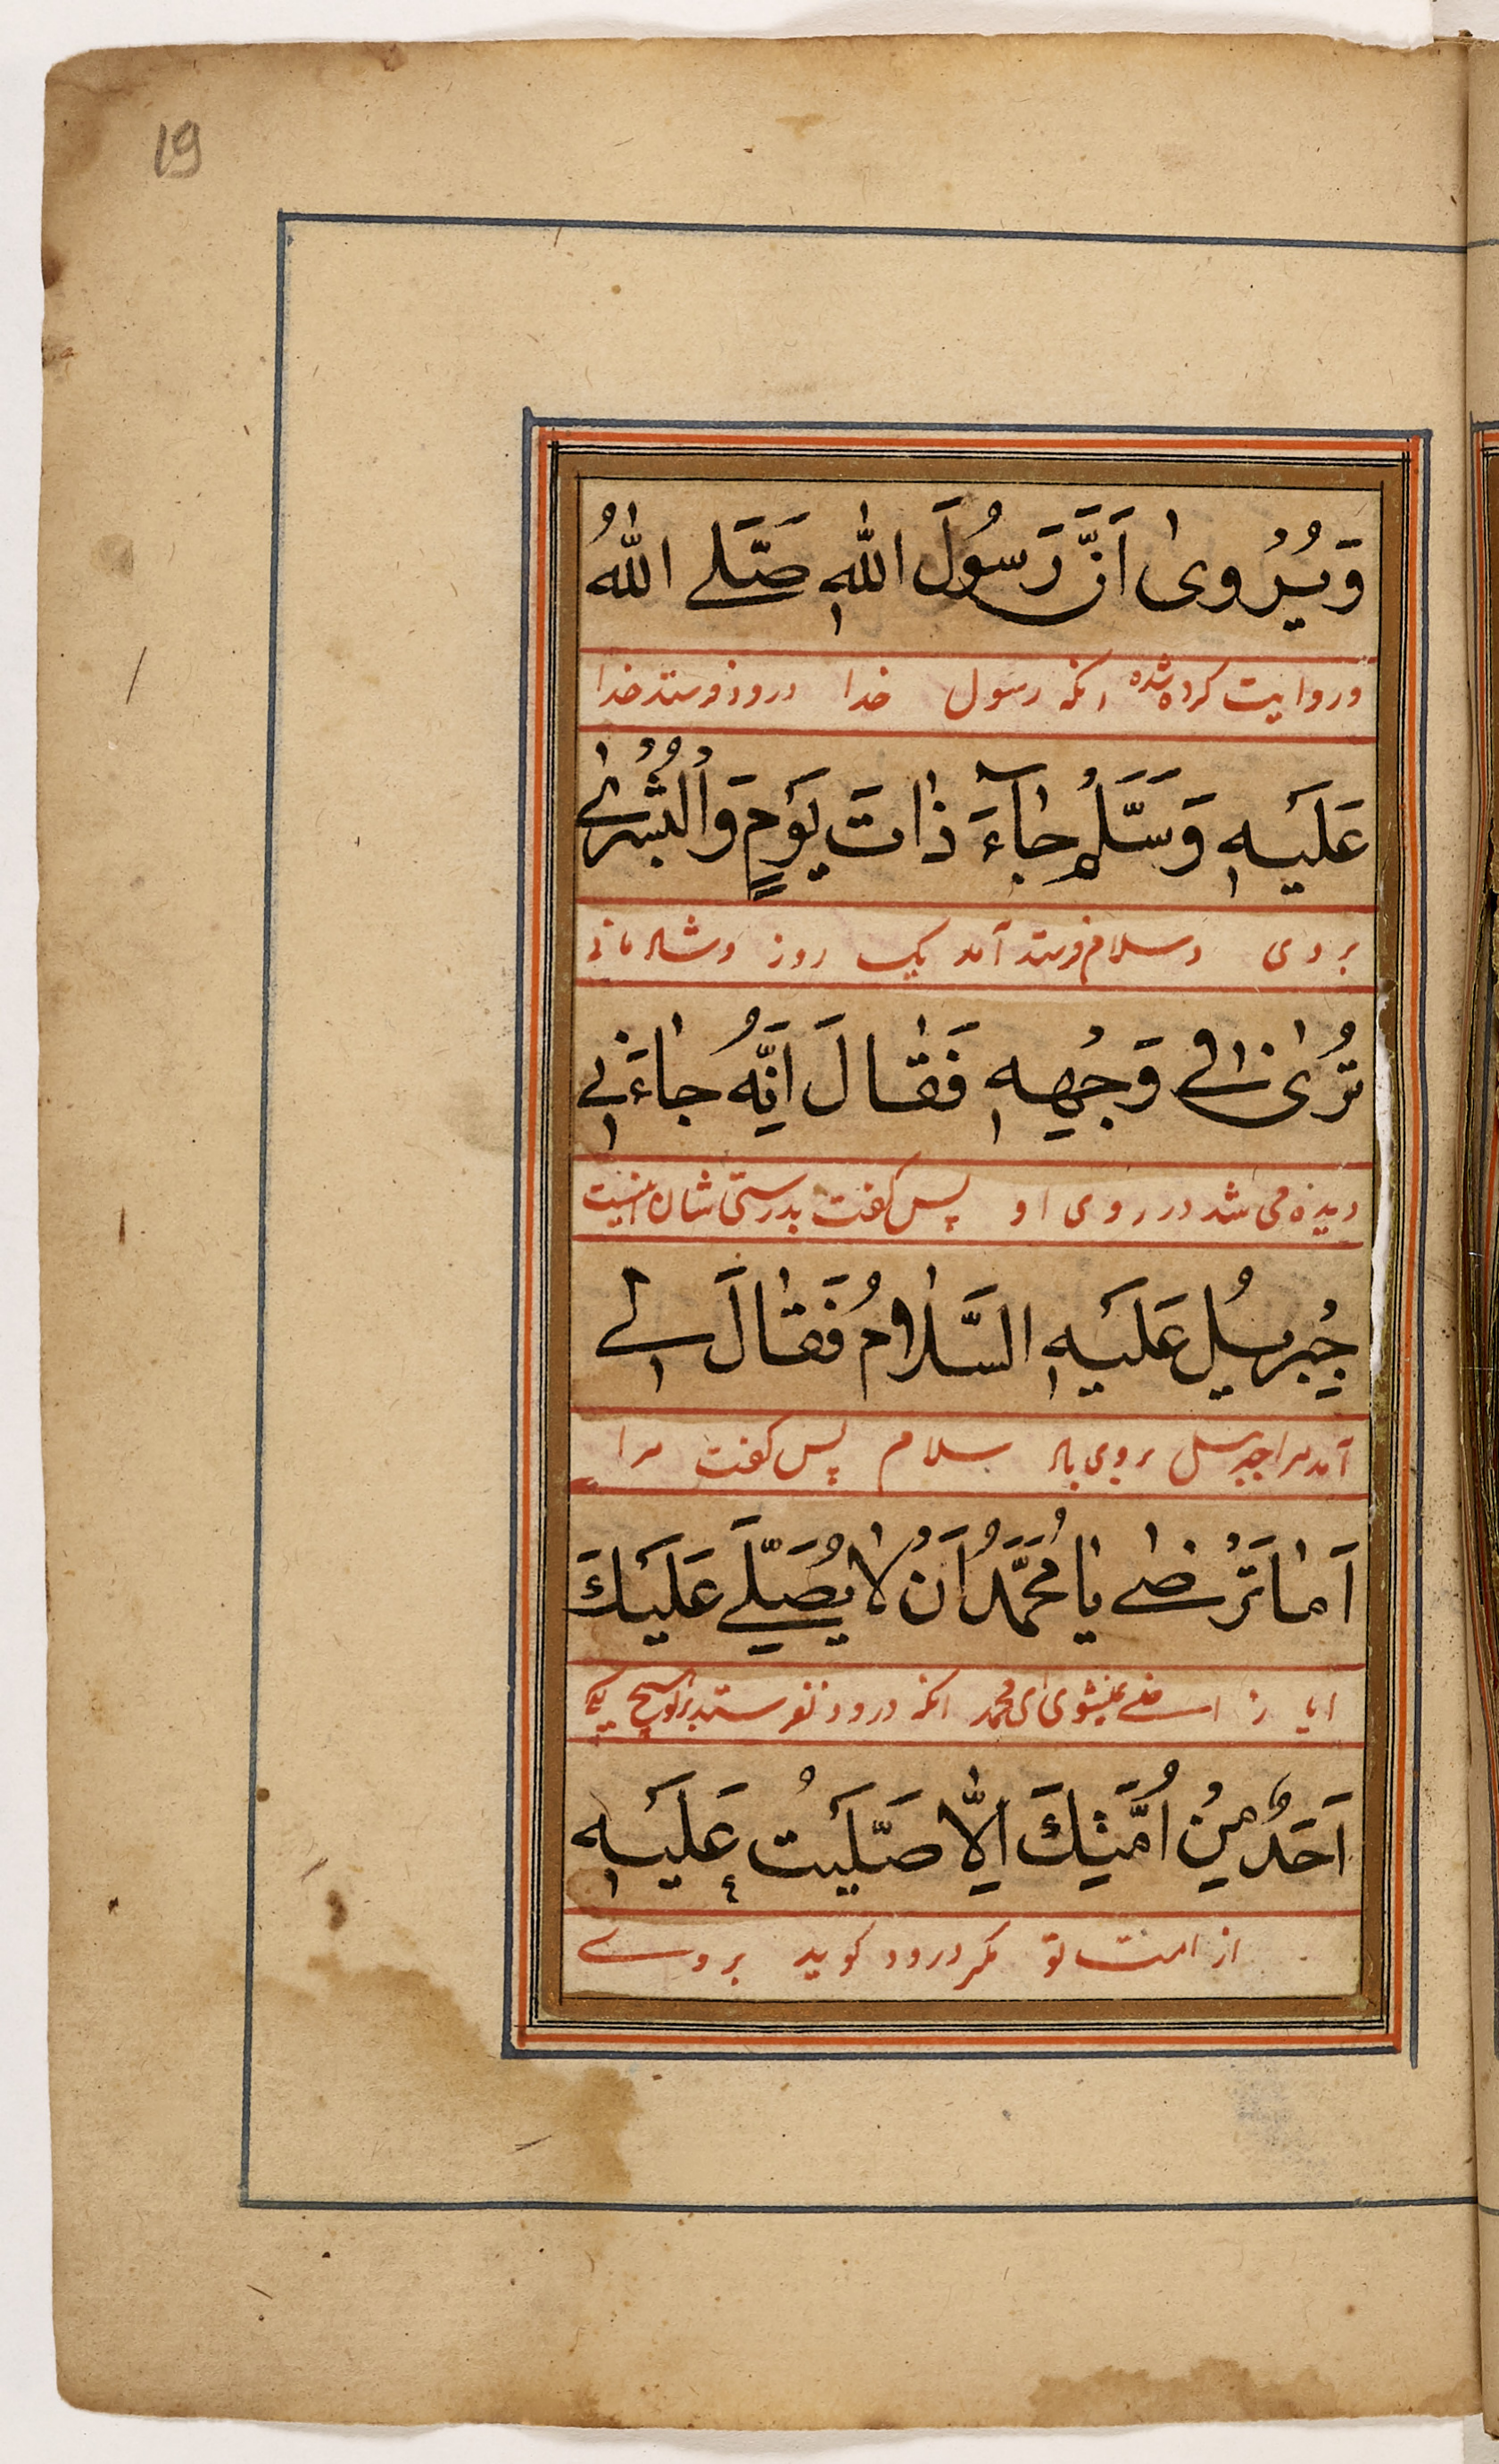 19
وَيُرْوىٰ اَنَّ رَسُولَ اللّٰهِ صَلَّے اللّٰهُ
و روایت کرده شده انکه رسول خدا درود فرستد خدا
عَلَيْهِ وَسَلَّمَ جٰآءَ ذٰاتَ يَوْمٍ وَالْبُشْرٰے
بر وی و سلام فرستد آمد یک روز و شادمانی
تُرٰى فٖے وَجْهِهٖ فَقٰالَ اِنَّهُ جٰاءَنٖے
دیده می شد در روی او پس کفت بدرستی شان اینست
جِبْرِئيلُ عَلَيْهِ السَّلٰامُ فَقٰالَ لٖے
آمد مرا جبرئیل بروی باد سلام پس کفت مرا
اَمٰا تَرْضٰے يٰا مُحَمَّدُ اَنْ لٰا يُصَلِّے عَلَيْكَ
ایا راضے نمیشوی ای محمد انکه درود نفرستد بر تو هیچ یکے
اَحَدٌ مِنْ اُمَّتِكَ اِلّٰا صَلَّيْتُ عَلَيْهِ
از امت تو مکر درود کوید بر وے